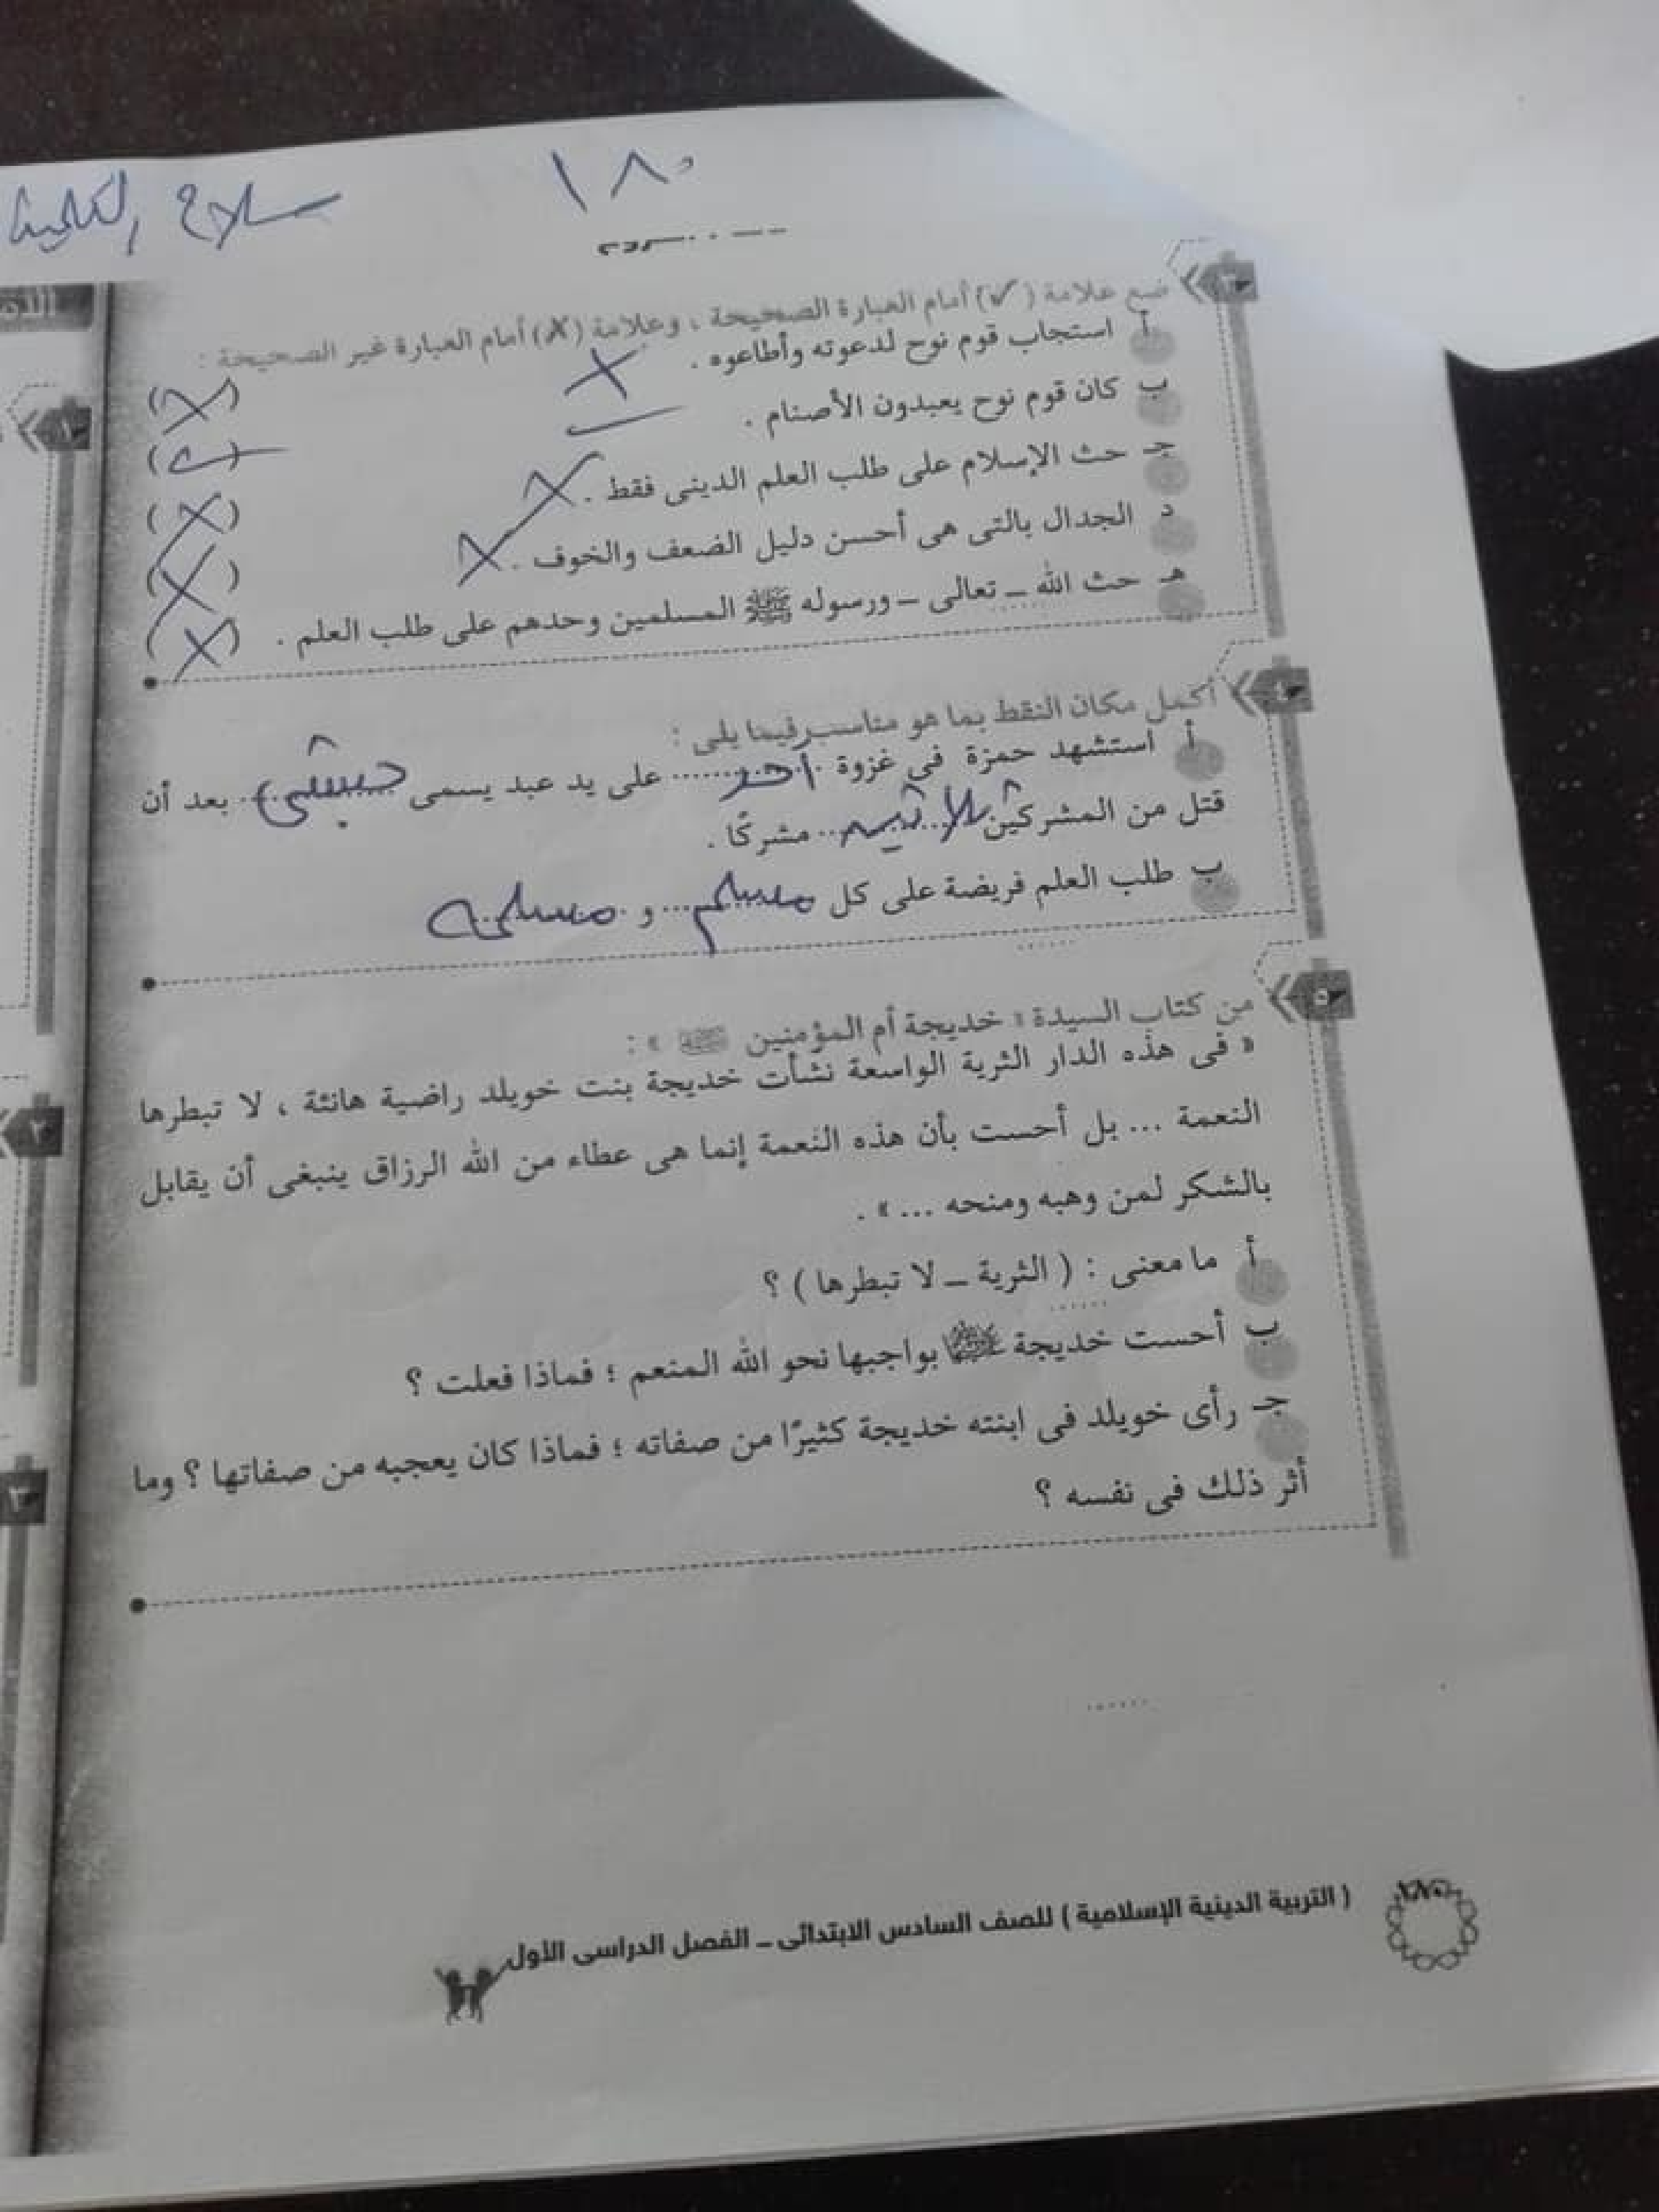 ١٨٠
سلاح التلميذ
٣
ضع علامة (✓) أمام العبارة الصحيحة ، وعلامة (✗) أمام العبارة غير الصحيحة :
أ استجاب قوم نوح لدعوته وأطاعوه . ✗ (✗)
ب كان قوم نوح يعبدون الأصنام . ✓ (✓)
جـ حث الإسلام على طلب العلم الدينى فقط . ✗ (✗)
د الجدال بالتى هى أحسن دليل الضعف والخوف . ✗ (✗)
هـ حث الله ـ تعالى ـ ورسوله ﷺ المسلمين وحدهم على طلب العلم . (✗)
٤
أكمل مكان النقط بما هو مناسب فيما يلى :
أ استشهد حمزة فى غزوة أحد على يد عبد يسمى حبشى بعد أن
قتل من المشركين ثلاثين مشركًا .
ب طلب العلم فريضة على كل مسلم و مسلمه
٥
من كتاب السيدة « خديجة أم المؤمنين » :
« فى هذه الدار الثرية الواسعة نشأت خديجة بنت خويلد راضية هانئة ، لا تبطرها
النعمة ... بل أحست بأن هذه النعمة إنما هى عطاء من الله الرزاق ينبغى أن يقابل
بالشكر لمن وهبه ومنحه ... » .
أ ما معنى : ( الثرية ـ لا تبطرها ) ؟
ب أحست خديجة بواجبها نحو الله المنعم ؛ فماذا فعلت ؟
جـ رأى خويلد فى ابنته خديجة كثيرًا من صفاته ؛ فماذا كان يعجبه من صفاتها ؟ وما
أثر ذلك فى نفسه ؟
( التربية الدينية الإسلامية ) للصف السادس الابتدائى ـ الفصل الدراسى الأول
١
٢
٣